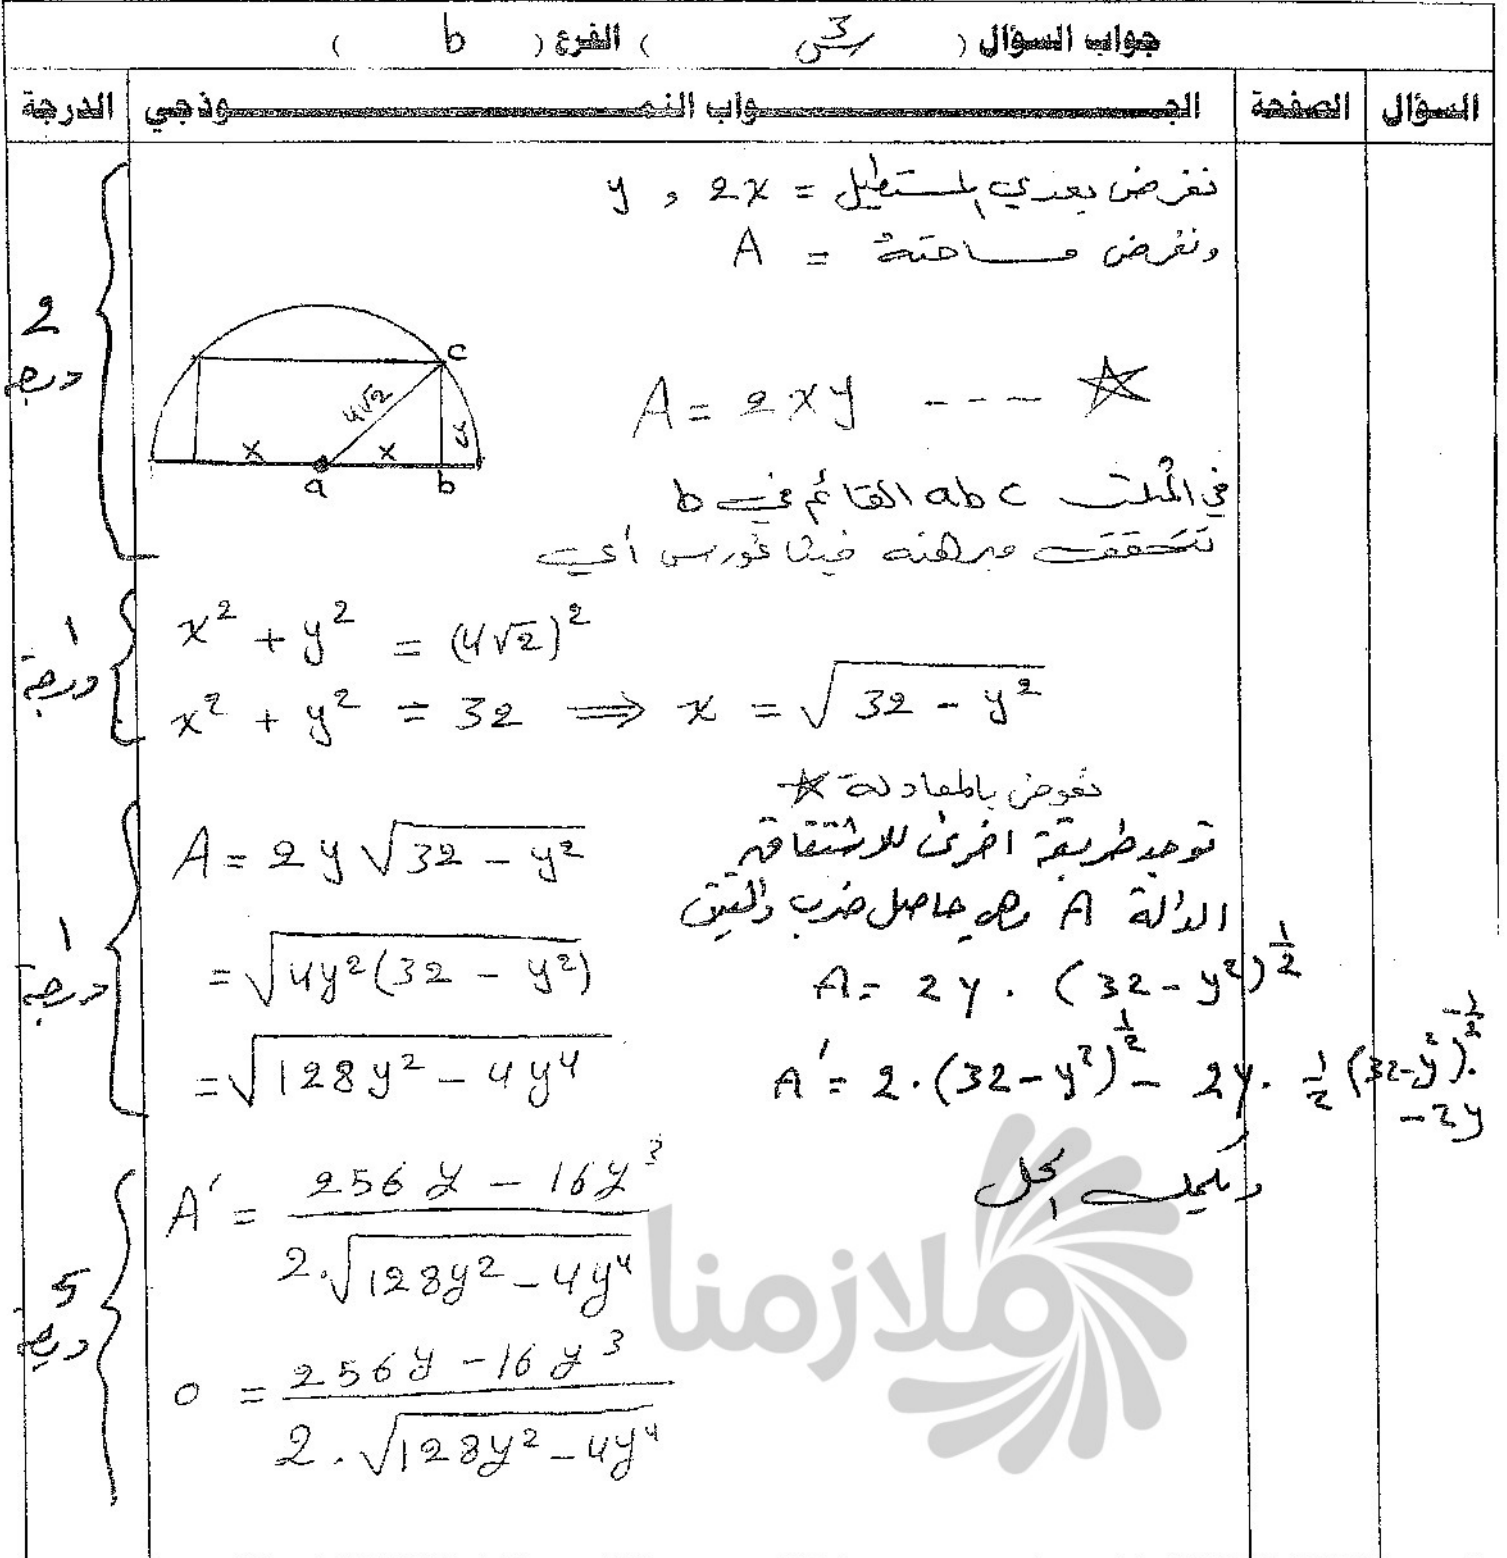 جواب السؤال ( س3 ) الفرع ( b )
السؤال الصفحة الجـــواب النمـــوذجي الدرجة
نفرض بعدي المستطيل = 2x , y
ونفرض مساحته = A
2
درجة
c
4√2
x x y
a b
A = 2xy ---- ☆
في المثلث abc القائم في b
تتحقق مبرهنة فيثاغورس أي
1
درجة
x² + y² = (4√2)²
x² + y² = 32 ⟹ x = √(32 - y²)
نعوض بالمعادلة ☆
1
درجة
A = 2y √(32 - y²)
= √(4y²(32 - y²))
= √(128y² - 4y⁴)
توجد طريقة اخرى للاشتقاق
الدالة A وهي حاصل ضرب دالتين
A = 2y . (32 - y²)^(1/2)
A' = 2.(32 - y²)^(1/2) - 2y. 1/2 (32-y²)^(-1/2).
-2y
ويكمل الحل
5
درجة
A' = (256y - 16y³) / (2.√(128y² - 4y⁴))
0 = (256y - 16y³) / (2.√(128y² - 4y⁴))
ملازمنا